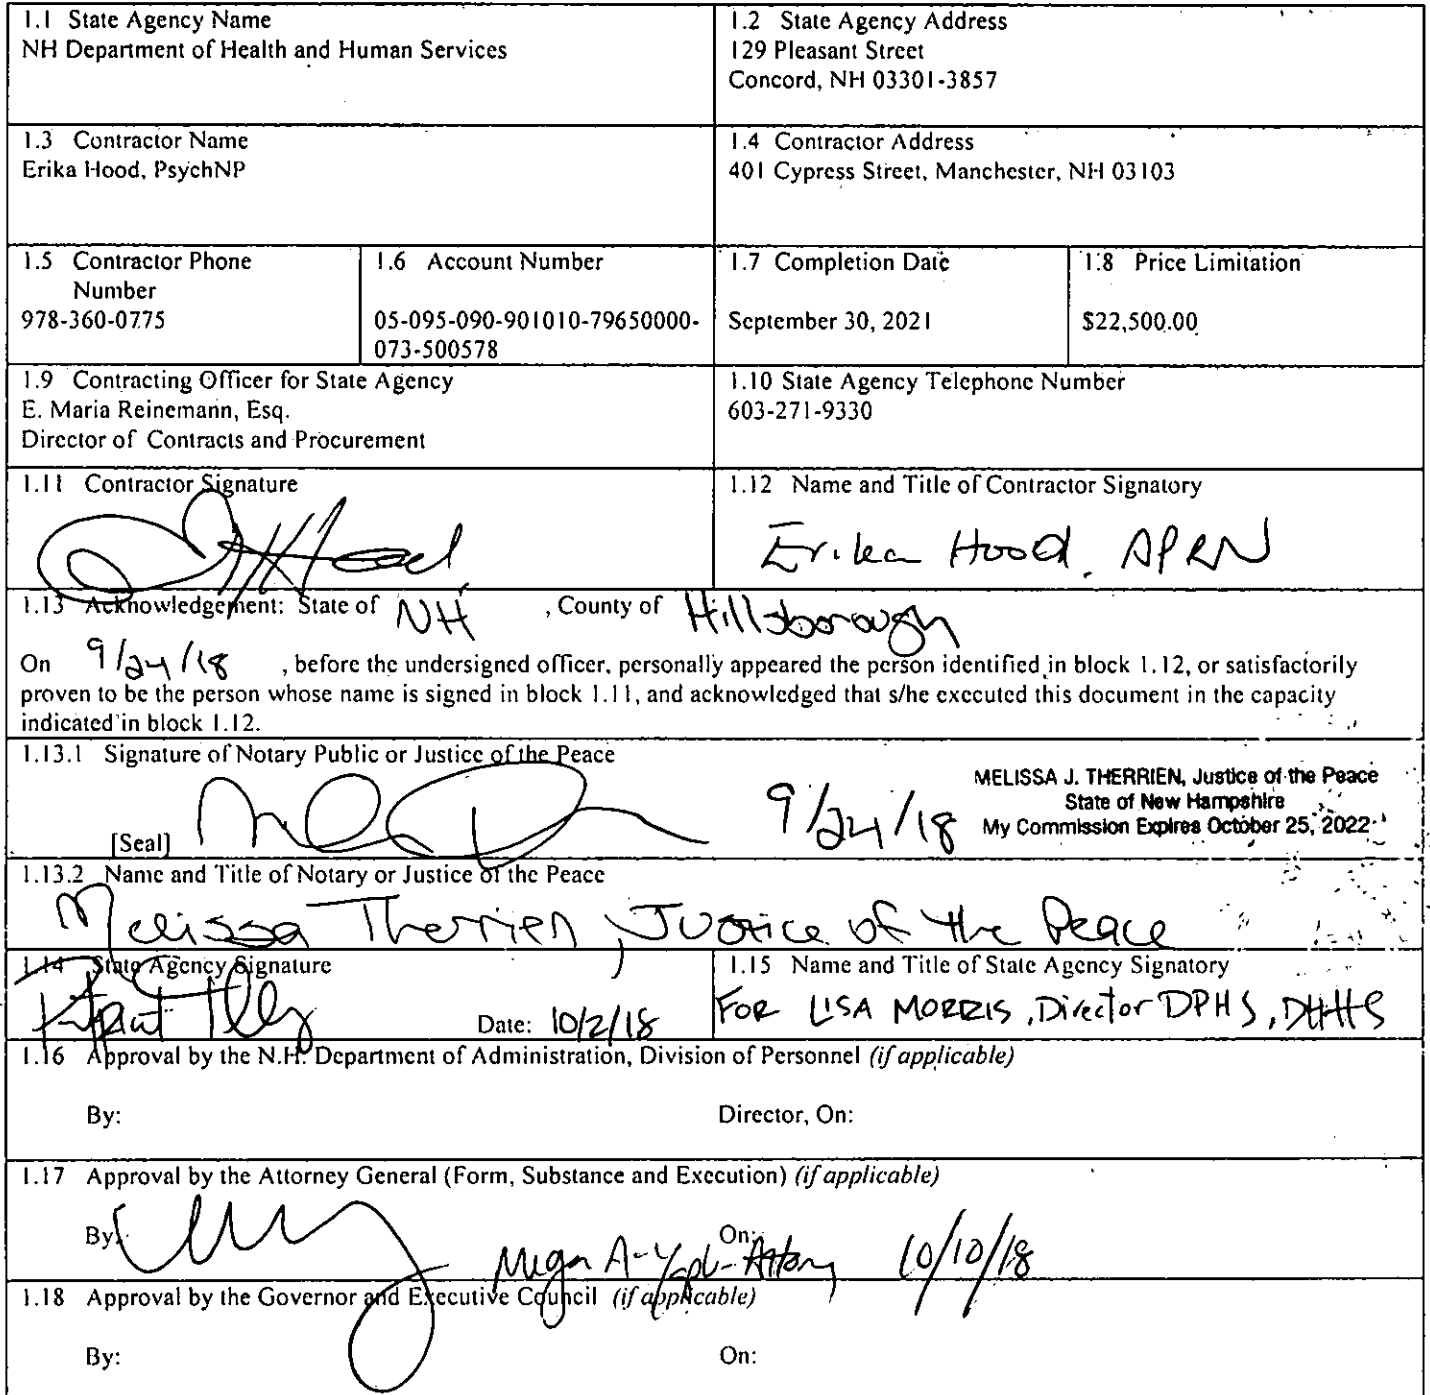 1.1 State Agency Name
NH Department of Health and Human Services
1.2 State Agency Address
129 Pleasant Street
Concord, NH 03301-3857
1.3 Contractor Name
Erika Hood, PsychNP
1.4 Contractor Address
401 Cypress Street, Manchester, NH 03103
1.5 Contractor Phone
Number
978-360-0775
1.6 Account Number
05-095-090-901010-79650000-
073-500578
1.7 Completion Date
September 30, 2021
1.8 Price Limitation
$22,500.00
1.9 Contracting Officer for State Agency
E. Maria Reinemann, Esq.
Director of Contracts and Procurement
1.10 State Agency Telephone Number
603-271-9330
1.11 Contractor Signature
Hood
1.12 Name and Title of Contractor Signatory
Erika Hood, APRN
1.13 Acknowledgement: State of NH , County of Hillsborough
On 9/24/18 , before the undersigned officer, personally appeared the person identified in block 1.12, or satisfactorily
proven to be the person whose name is signed in block 1.11, and acknowledged that s/he executed this document in the capacity
indicated in block 1.12.
1.13.1 Signature of Notary Public or Justice of the Peace
[Seal] 9/24/18
MELISSA J. THERRIEN, Justice of the Peace
State of New Hampshire
My Commission Expires October 25, 2022
1.13.2 Name and Title of Notary or Justice of the Peace
Melissa Therrien, Justice of the Peace
1.14 State Agency Signature
Date: 10/2/18
1.15 Name and Title of State Agency Signatory
FOR LISA MORRIS, Director DPHS, DHHS
1.16 Approval by the N.H. Department of Administration, Division of Personnel (if applicable)
By: Director, On:
1.17 Approval by the Attorney General (Form, Substance and Execution) (if applicable)
By: On:
Megan A. - Attorney 10/10/18
1.18 Approval by the Governor and Executive Council (if applicable)
By: On: